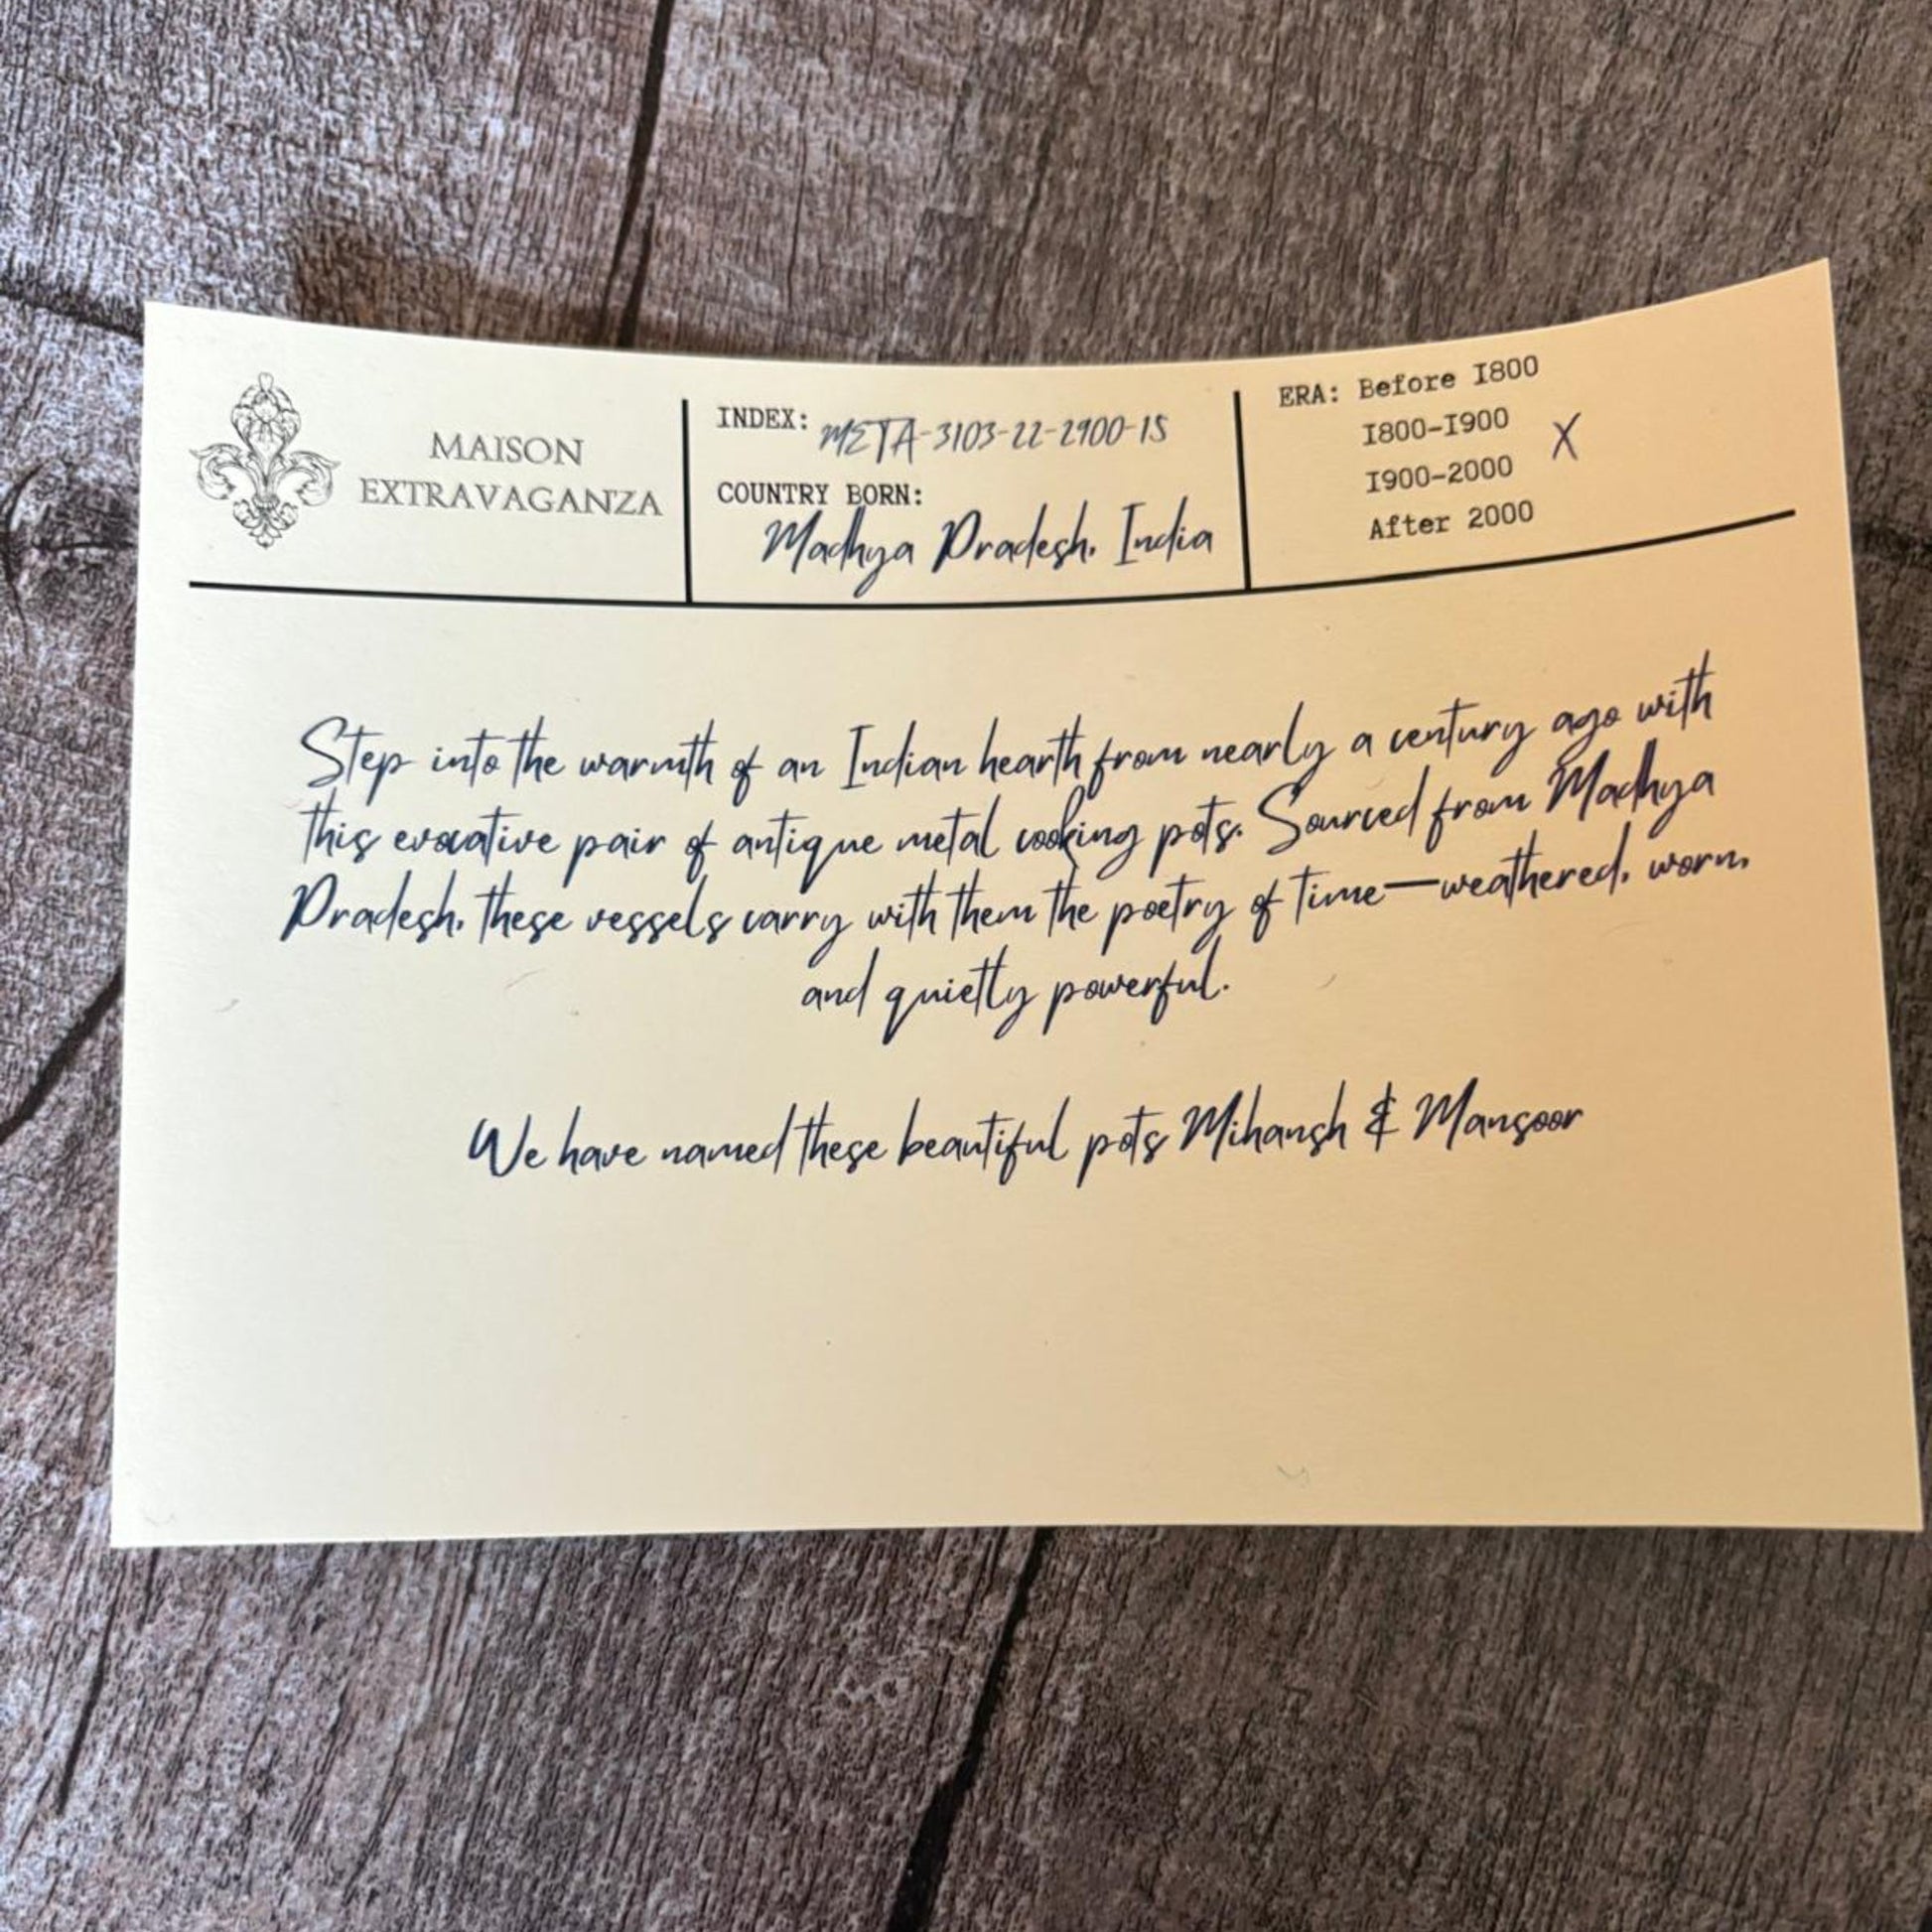 MAISON
EXTRAVAGANZA
INDEX: META-3103-22-2900-15
COUNTRY BORN:
Madhya Pradesh, India
ERA: Before I800
I800-I900 X
I900-2000
After 2000
Step into the warmth of an Indian hearth from nearly a century ago with
this evocative pair of antique metal cooking pots. Sourced from Madhya
Pradesh, these vessels carry with them the poetry of time—weathered, worn,
and quietly powerful.
We have named these beautiful pots Mihansh & Mansoor